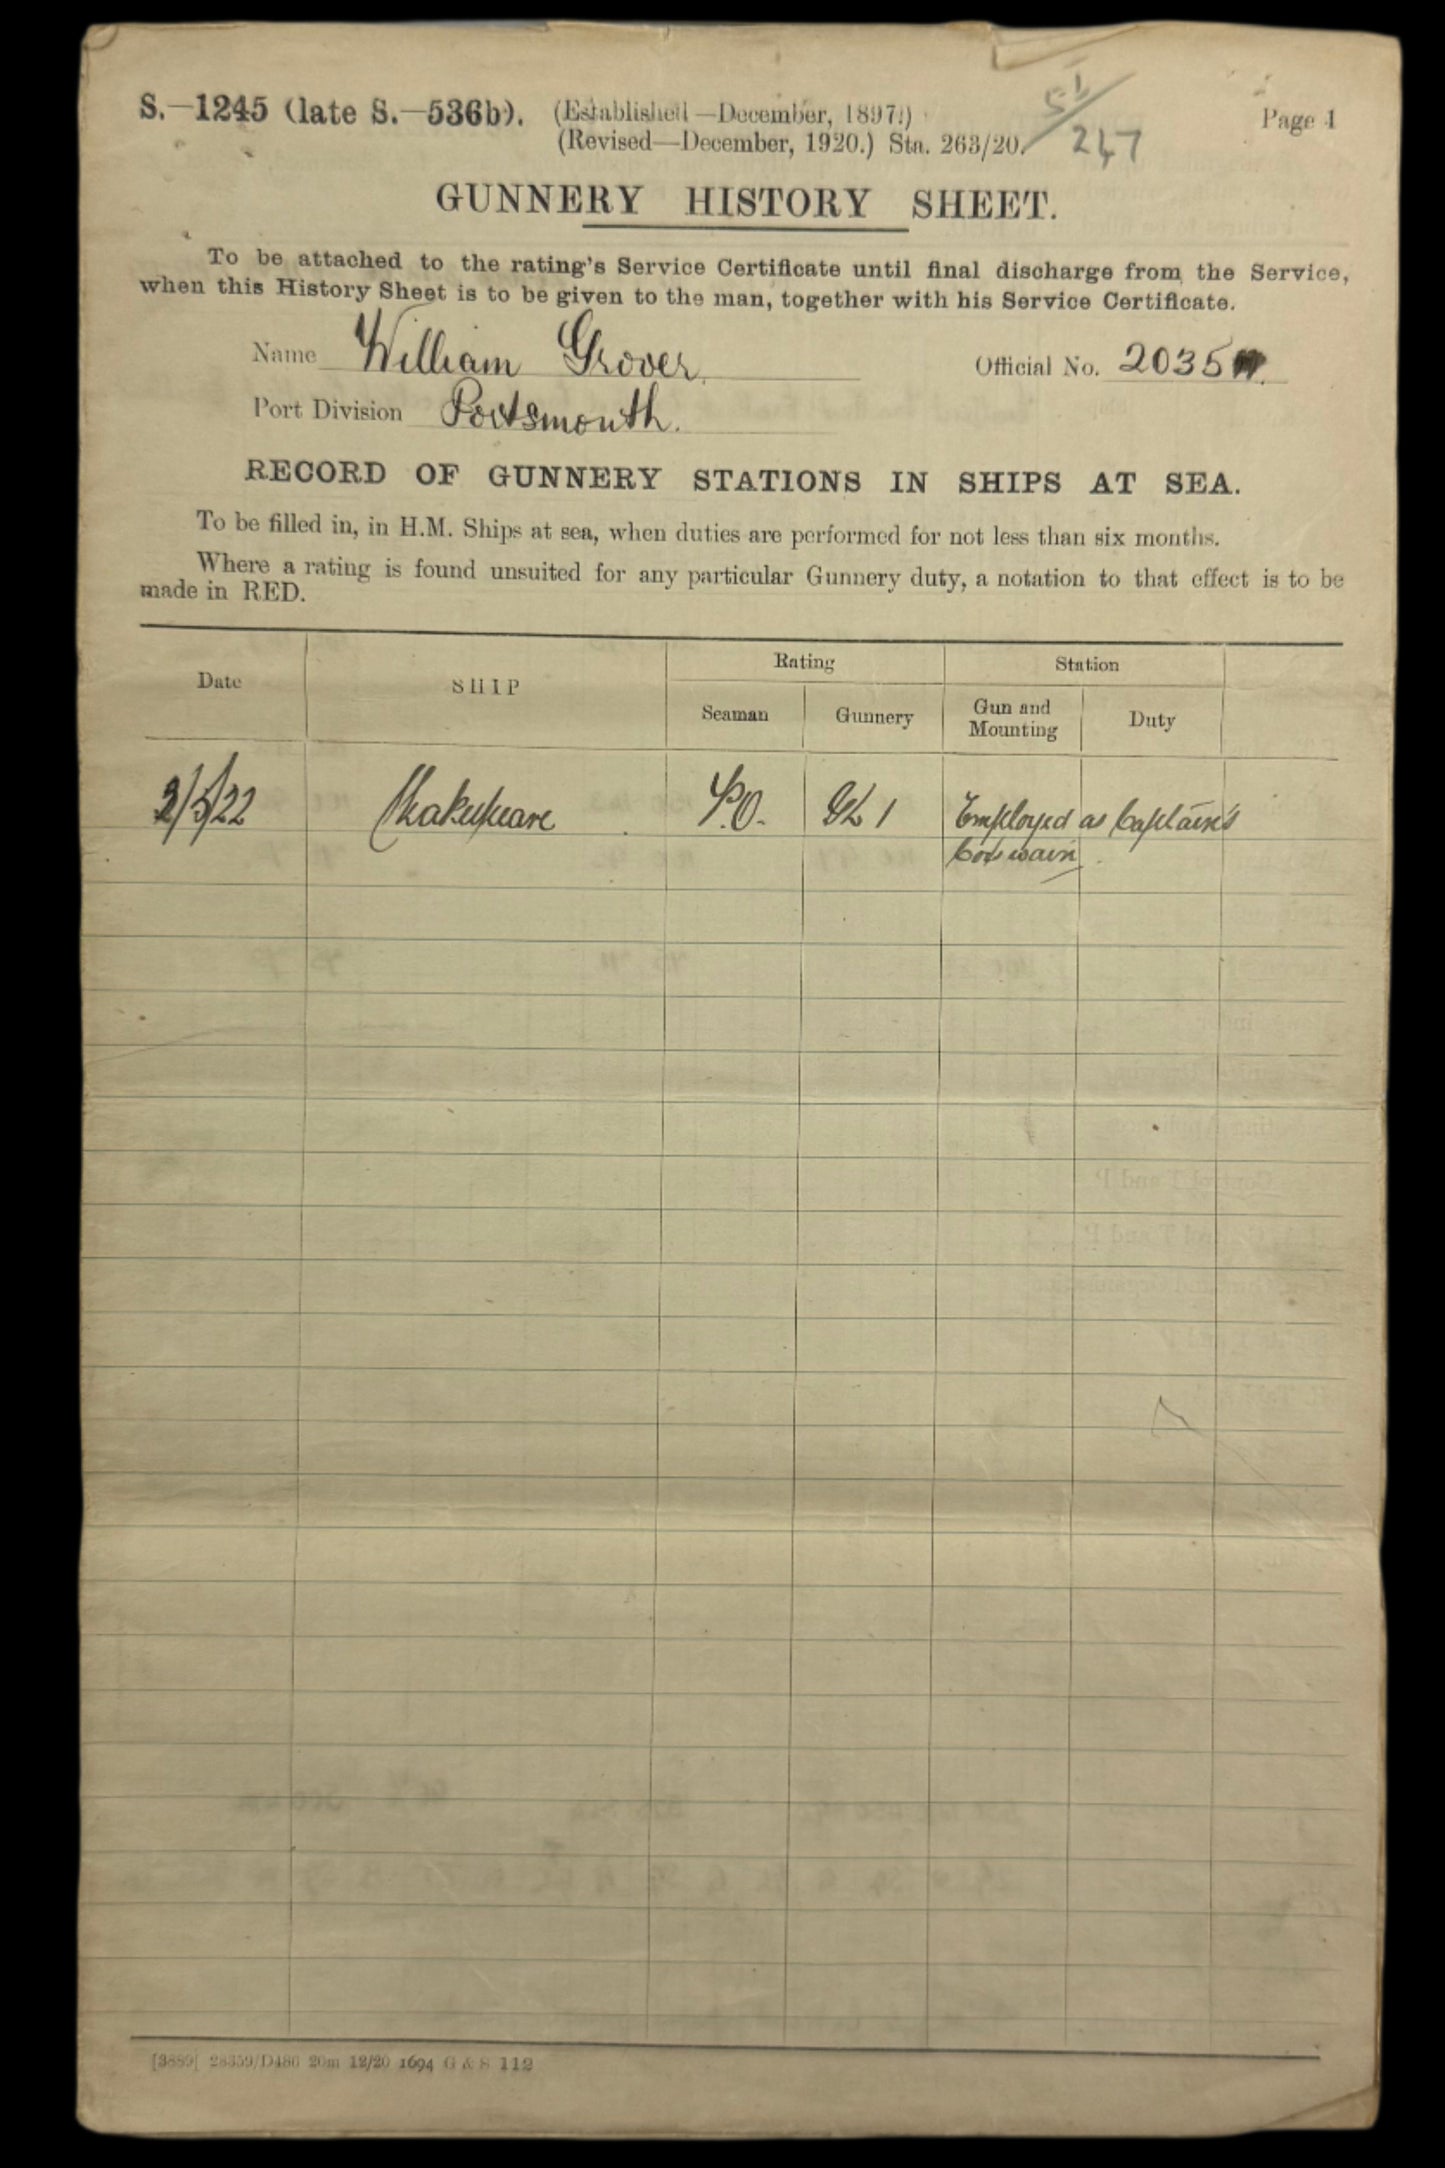 S.—1245 (late S.—536b). (Established—December, 1897.) Page 1
(Revised—December, 1920.) Sta. 263/20. 51/247
GUNNERY HISTORY SHEET.
To be attached to the rating's Service Certificate until final discharge from the Service,
when this History Sheet is to be given to the man, together with his Service Certificate.
Name William Grover. Official No. 2035
Port Division Portsmouth.
RECORD OF GUNNERY STATIONS IN SHIPS AT SEA.
To be filled in, in H.M. Ships at sea, when duties are performed for not less than six months.
Where a rating is found unsuited for any particular Gunnery duty, a notation to that effect is to be
made in RED.
Rating Station
Date SHIP
Seaman Gunnery Gun and Mounting Duty
/5/22 Shakespeare P.O. GL 1 Employed as Captain's
Coxswain.
[3889[ 28359/D486 20m 12/20 1694 G & S 112